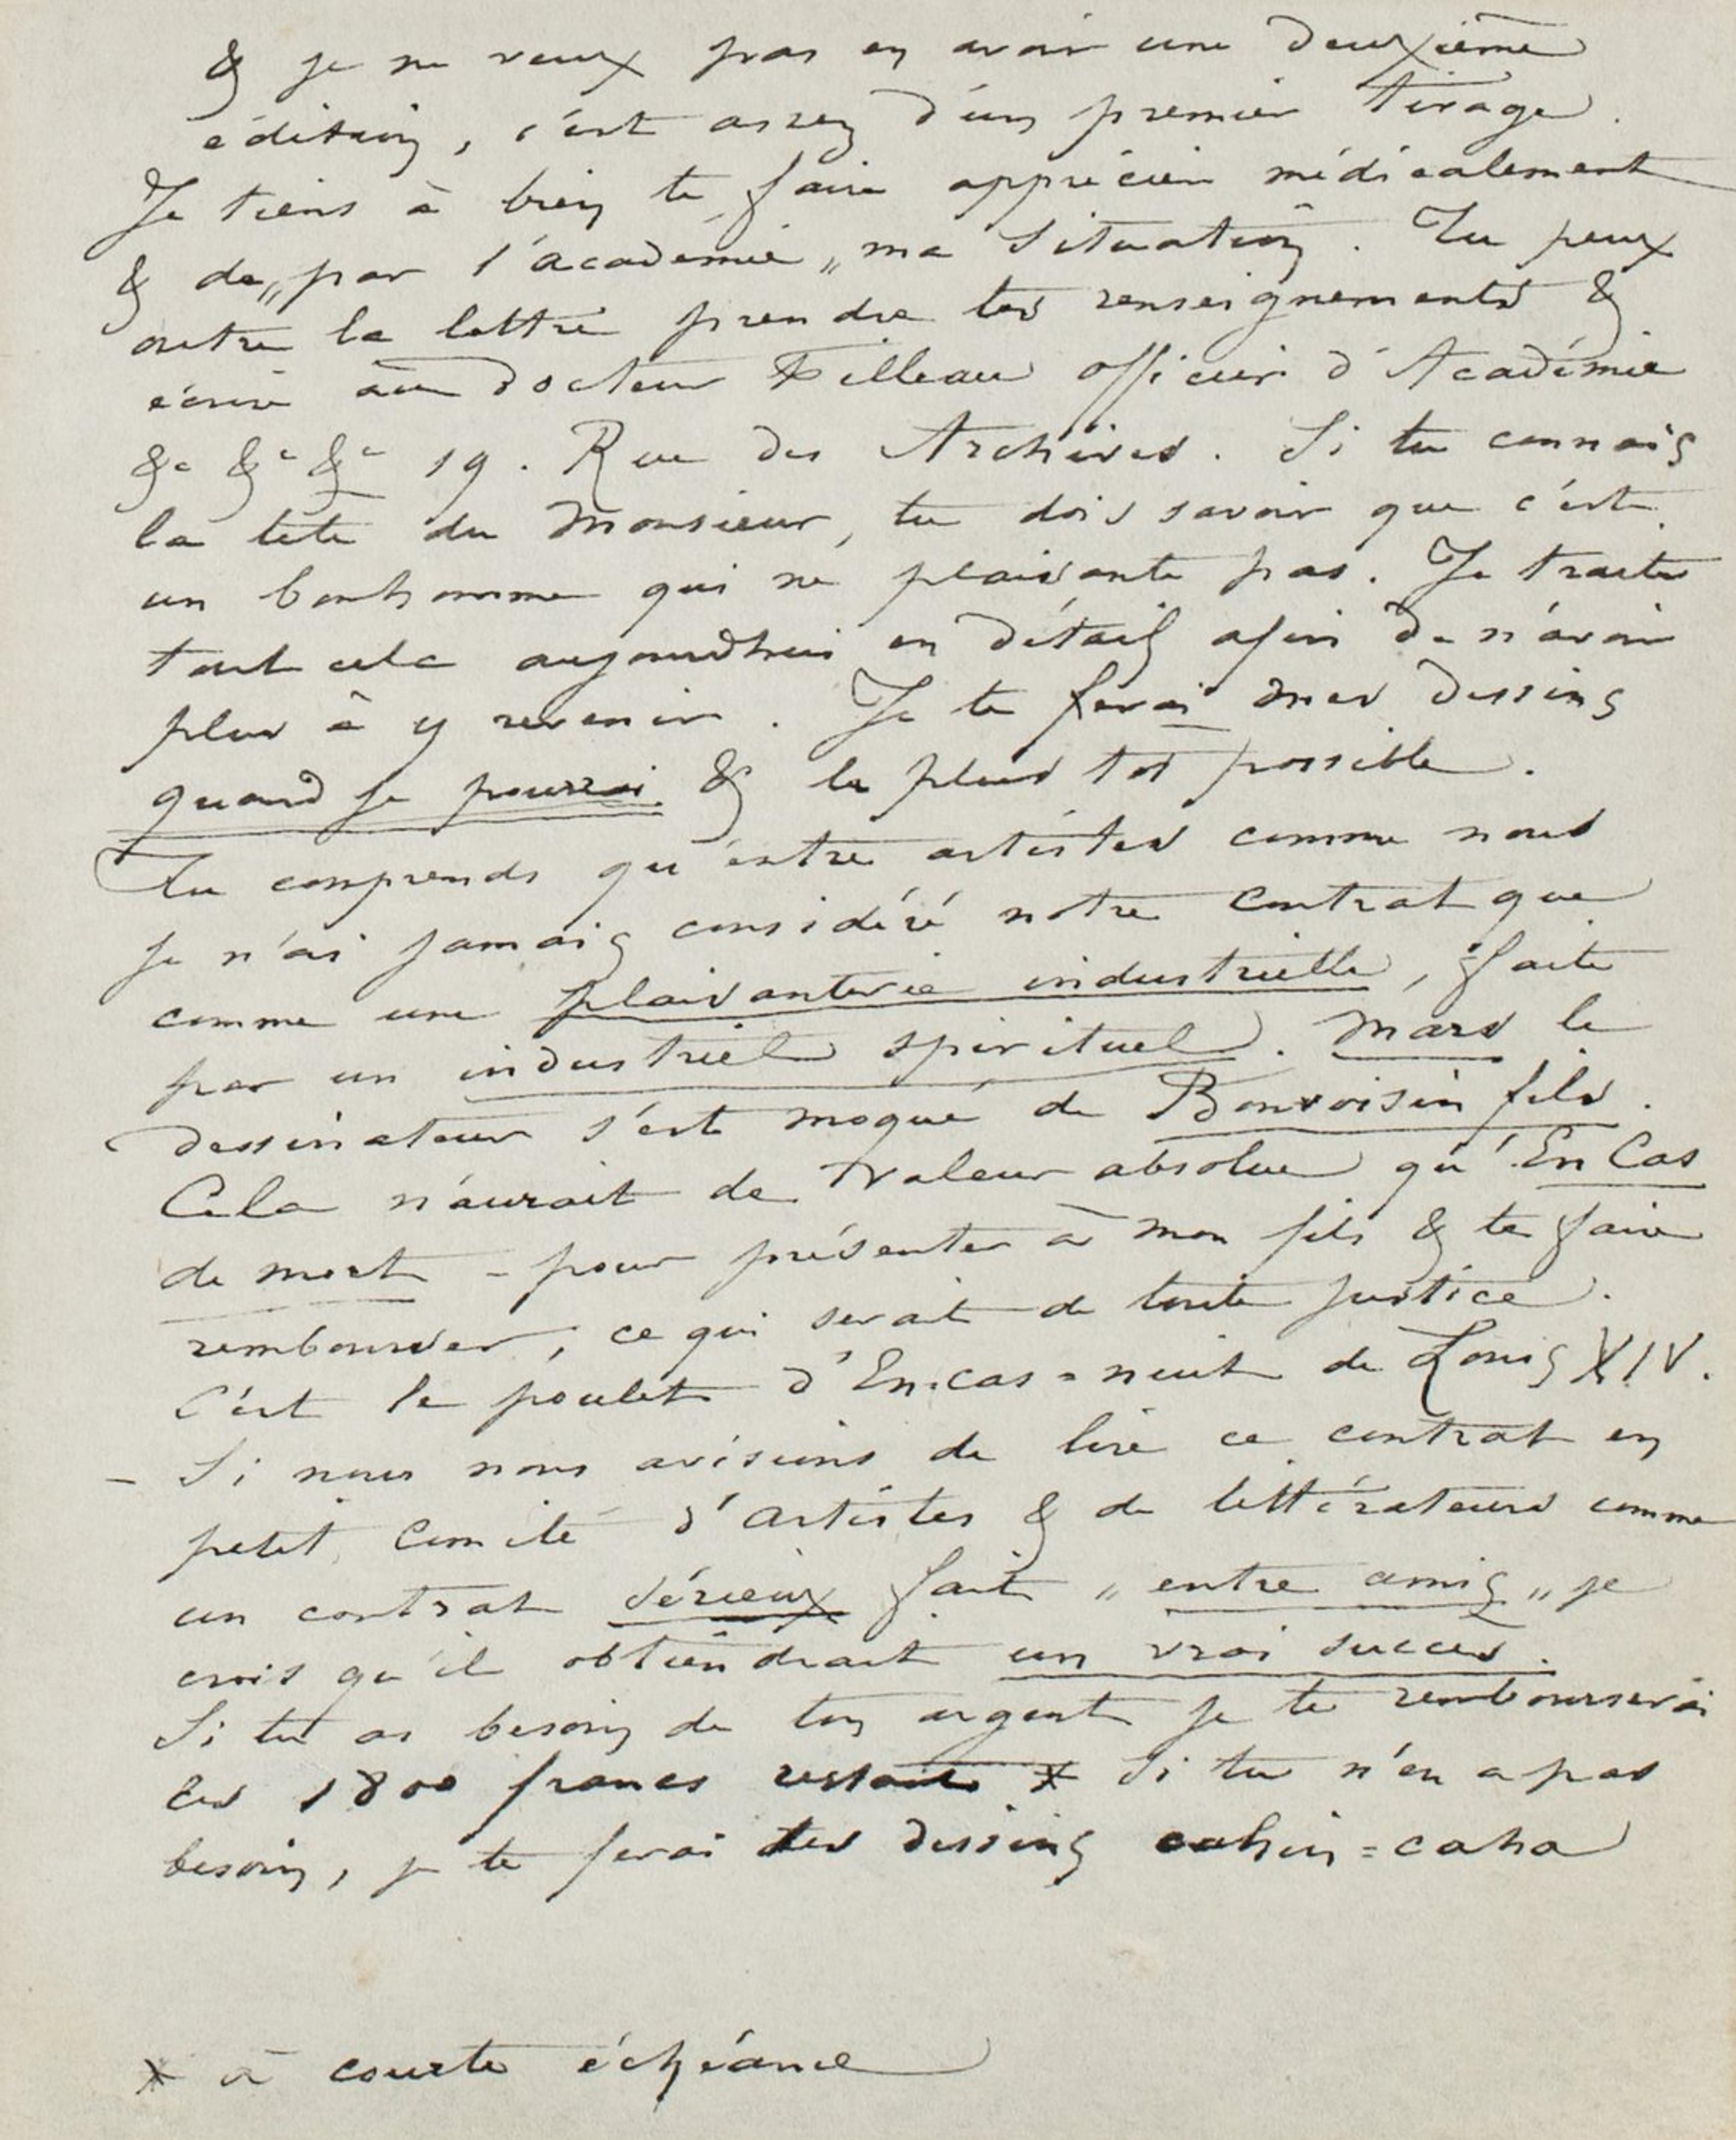 & je ne veux pas en avoir une deuxième
édition, c'est assez d'un premier tirage.
Je tiens à bien te faire apprécier médicalement
& de „par l'académie„ ma situation. Tu peux
outre la lettre prendre tes renseignements &
écrire au docteur Filleau officier d'Académie
&c &c &c 19. Rue des Archives. Si tu connais
la tête du Monsieur, tu dois savoir que c'est
un bonhomme qui ne plaisante pas. Je traite
tout cela aujourdhui en détail afin de n'avoir
plus à y revenir. Je te ferai mes dessins
quand je pourrai & le plus tot possible.
Tu comprends qu'entre artistes comme nous
je n'ai jamais considéré notre contrat que
comme une plaisanterie industrielle, faite
par un industriel spirituel. Mars le
dessinateur s'est moqué de Bonvoisin fils.
Cela n'aurait de valeur absolue qu'En Cas
de mort - pour présenter à mon fils & te faire
rembourser, ce qui serait de toute justice.
C'est le poulet d'En-cas=nuit de Louis XIV.
- Si nous nous avisions de lire ce contrat en
petit comité d'artistes & de littérateurs comme
un contrat sérieux fait „entre amis„ je
crois qu'il obtiendrait un vrai succès.
Si tu as besoin de ton argent je te rembourserai
les 1800 francs restants * Si tu n'en a pas
besoin, je te ferai tes dessins cahin=caha
* à courte échéance